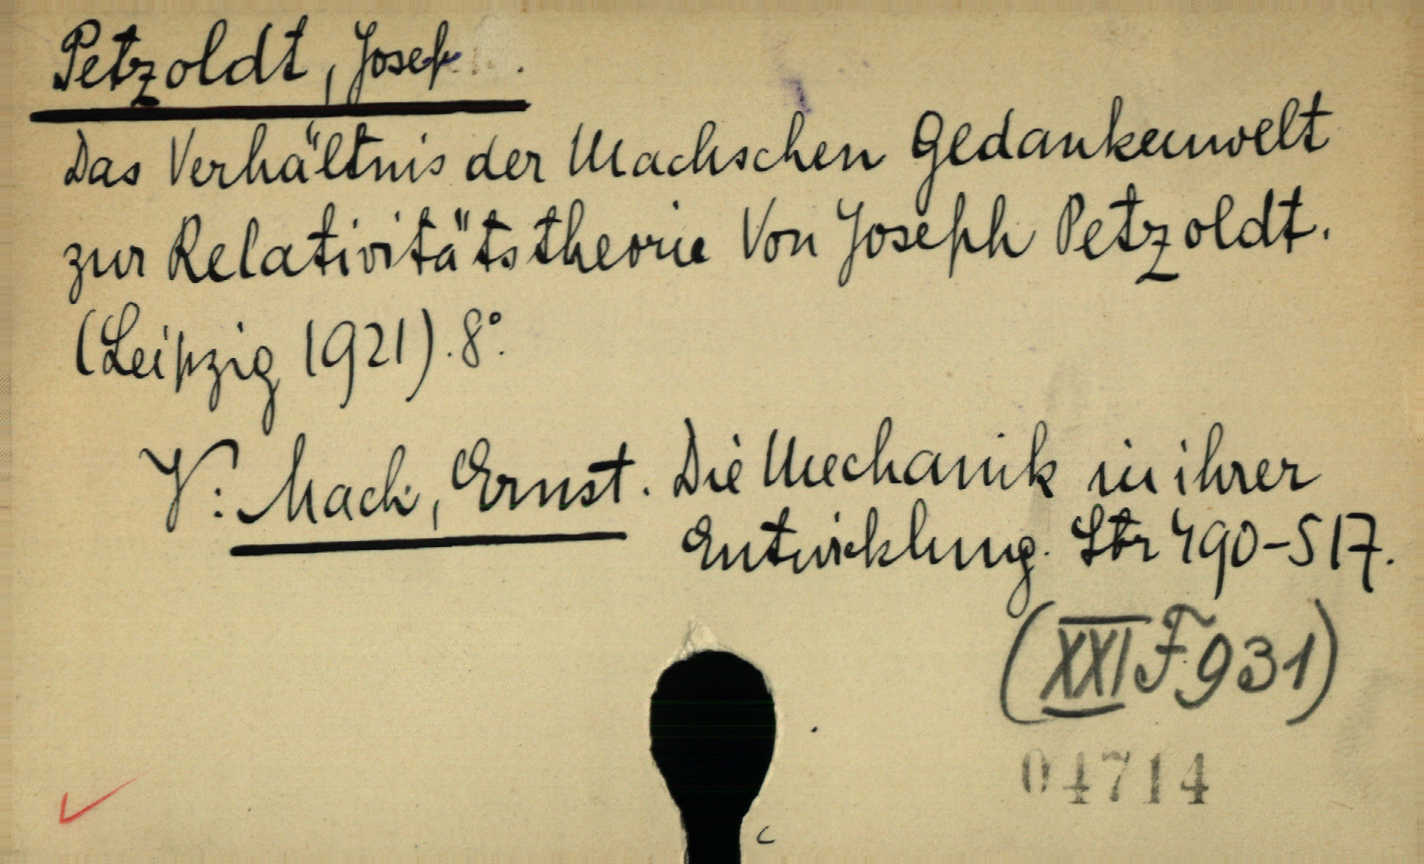 Petzoldt, Josef
Das Verhältnis der Machschen Gedankenwelt
zur Relativitätstheorie Von Joseph Petzoldt.
(Leipzig 1921). 8°.
V: Mach, Ernst. Die Mechanik in ihrer
Entwicklung. Str 490-517.
(XXI F. 931)
04714